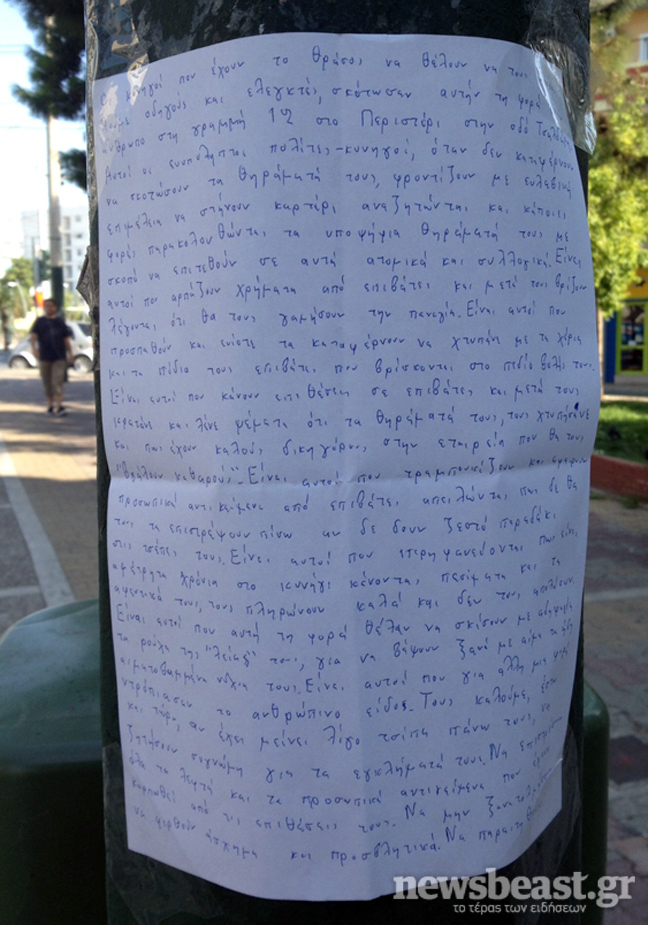 κυνηγοί που έχουν το θράσος να θέλουν να τους
λέμε οδηγούς και ελεγκτές, σκότωσαν αυτήν τη φορά
άνθρωπο στη γραμμή 12 στο Περιστέρι στην οδό Τσαλδάρη
Αυτοί οι ευυπόληπτοι πολίτες-κυνηγοί, όταν δεν καταφέρνουν
να σκοτώσουν τα θηράματά τους, φροντίζουν με ευλαβική
επιμέλεια να στήνουν καρτέρι αναζητώντας και κάποιες
φορές παρακολουθώντας τα υποψήφια θηράματά τους με
σκοπό να επιτεθούν σε αυτά ατομικά και συλλογικά. Είναι
αυτοί που αρπάζουν χρήματα από επιβάτες και μετά τους βρίζουν
λέγοντας ότι θα τους γαμήσουν την παναγία. Είναι αυτοί που
προσπαθούν και ενίοτε τα καταφέρνουν να χτυπάνε με τα χέρια
και τα πόδια τους επιβάτες που βρίσκονται στο πεδίο βολής τους.
Είναι αυτοί που κάνουν επιθέσεις σε επιβάτες και μετά τους
κρατάνε και λένε ψέματα ότι τα θηράματά τους, τους χτυπήσανε
και πως έχουν καλούς δικηγόρους στην εταιρεία που θα τους
"βγάλουν καθαρούς". Είναι αυτοί που τραμπουκίζουν και
προσωπικά αντικείμενα από επιβάτες απειλώντας πως δε θα
τους τα επιστρέψουν πίσω αν δε δουν ζεστό παραδάκι
στις τσέπες τους. Είναι αυτοί που υπερηφανεύονται πως είναι
αμέτρητα χρόνια στο κυνήγι κάνοντας πεσίματα και τα
αφεντικά τους, τους πληρώνουν καλά και δεν τους απολύουν.
Είναι αυτοί που αυτή τη φορά θέλαν να σκίσουν με
τα ρούχα της "λείας" τους, για να βάψουν ξανά με αίμα τα ήδη
αιματοβαμμένα νύχια τους. Είναι αυτοί που για άλλη μια φορά
ντρόπιασαν το ανθρώπινο είδος. Τους καλούμε, έστω
και τώρα, αν έχει μείνει λίγο τσίπα πάνω τους, να
ζητήσουν συγνώμη για τα εγκλήματά τους. Να επιστρέψουν
όλα τα λεφτά και τα προσωπικά αντικείμενα που έχουν
καρπωθεί από τις επιθέσεις τους. Να μην ξανατολμήσουν
να φερθούν άσχημα και προσβλητικά. Να
newsbeast.gr
το τέρας των ειδήσεων